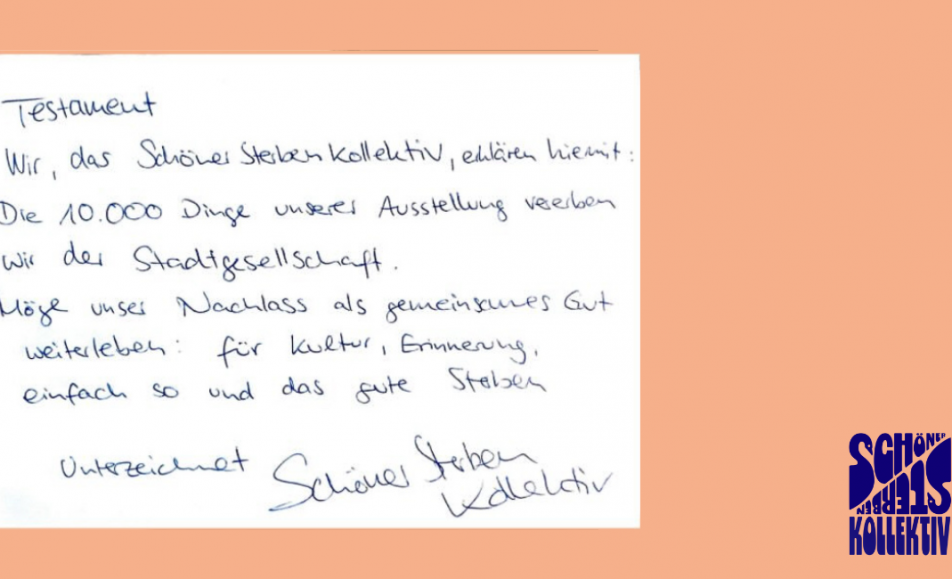 Testament
Wir, das Schöner Sterben Kollektiv, erklären hiermit:
Die 10.000 Dinge unserer Ausstellung vererben
wir der Stadtgesellschaft.
Möge unser Nachlass als gemeinsames Gut
weiterleben: für Kultur, Erinnerung,
einfach so und das gute Sterben
Unterzeichnet Schöner Sterben
Kollektiv
SCHÖNER
STERBEN
KOLLEKTIV